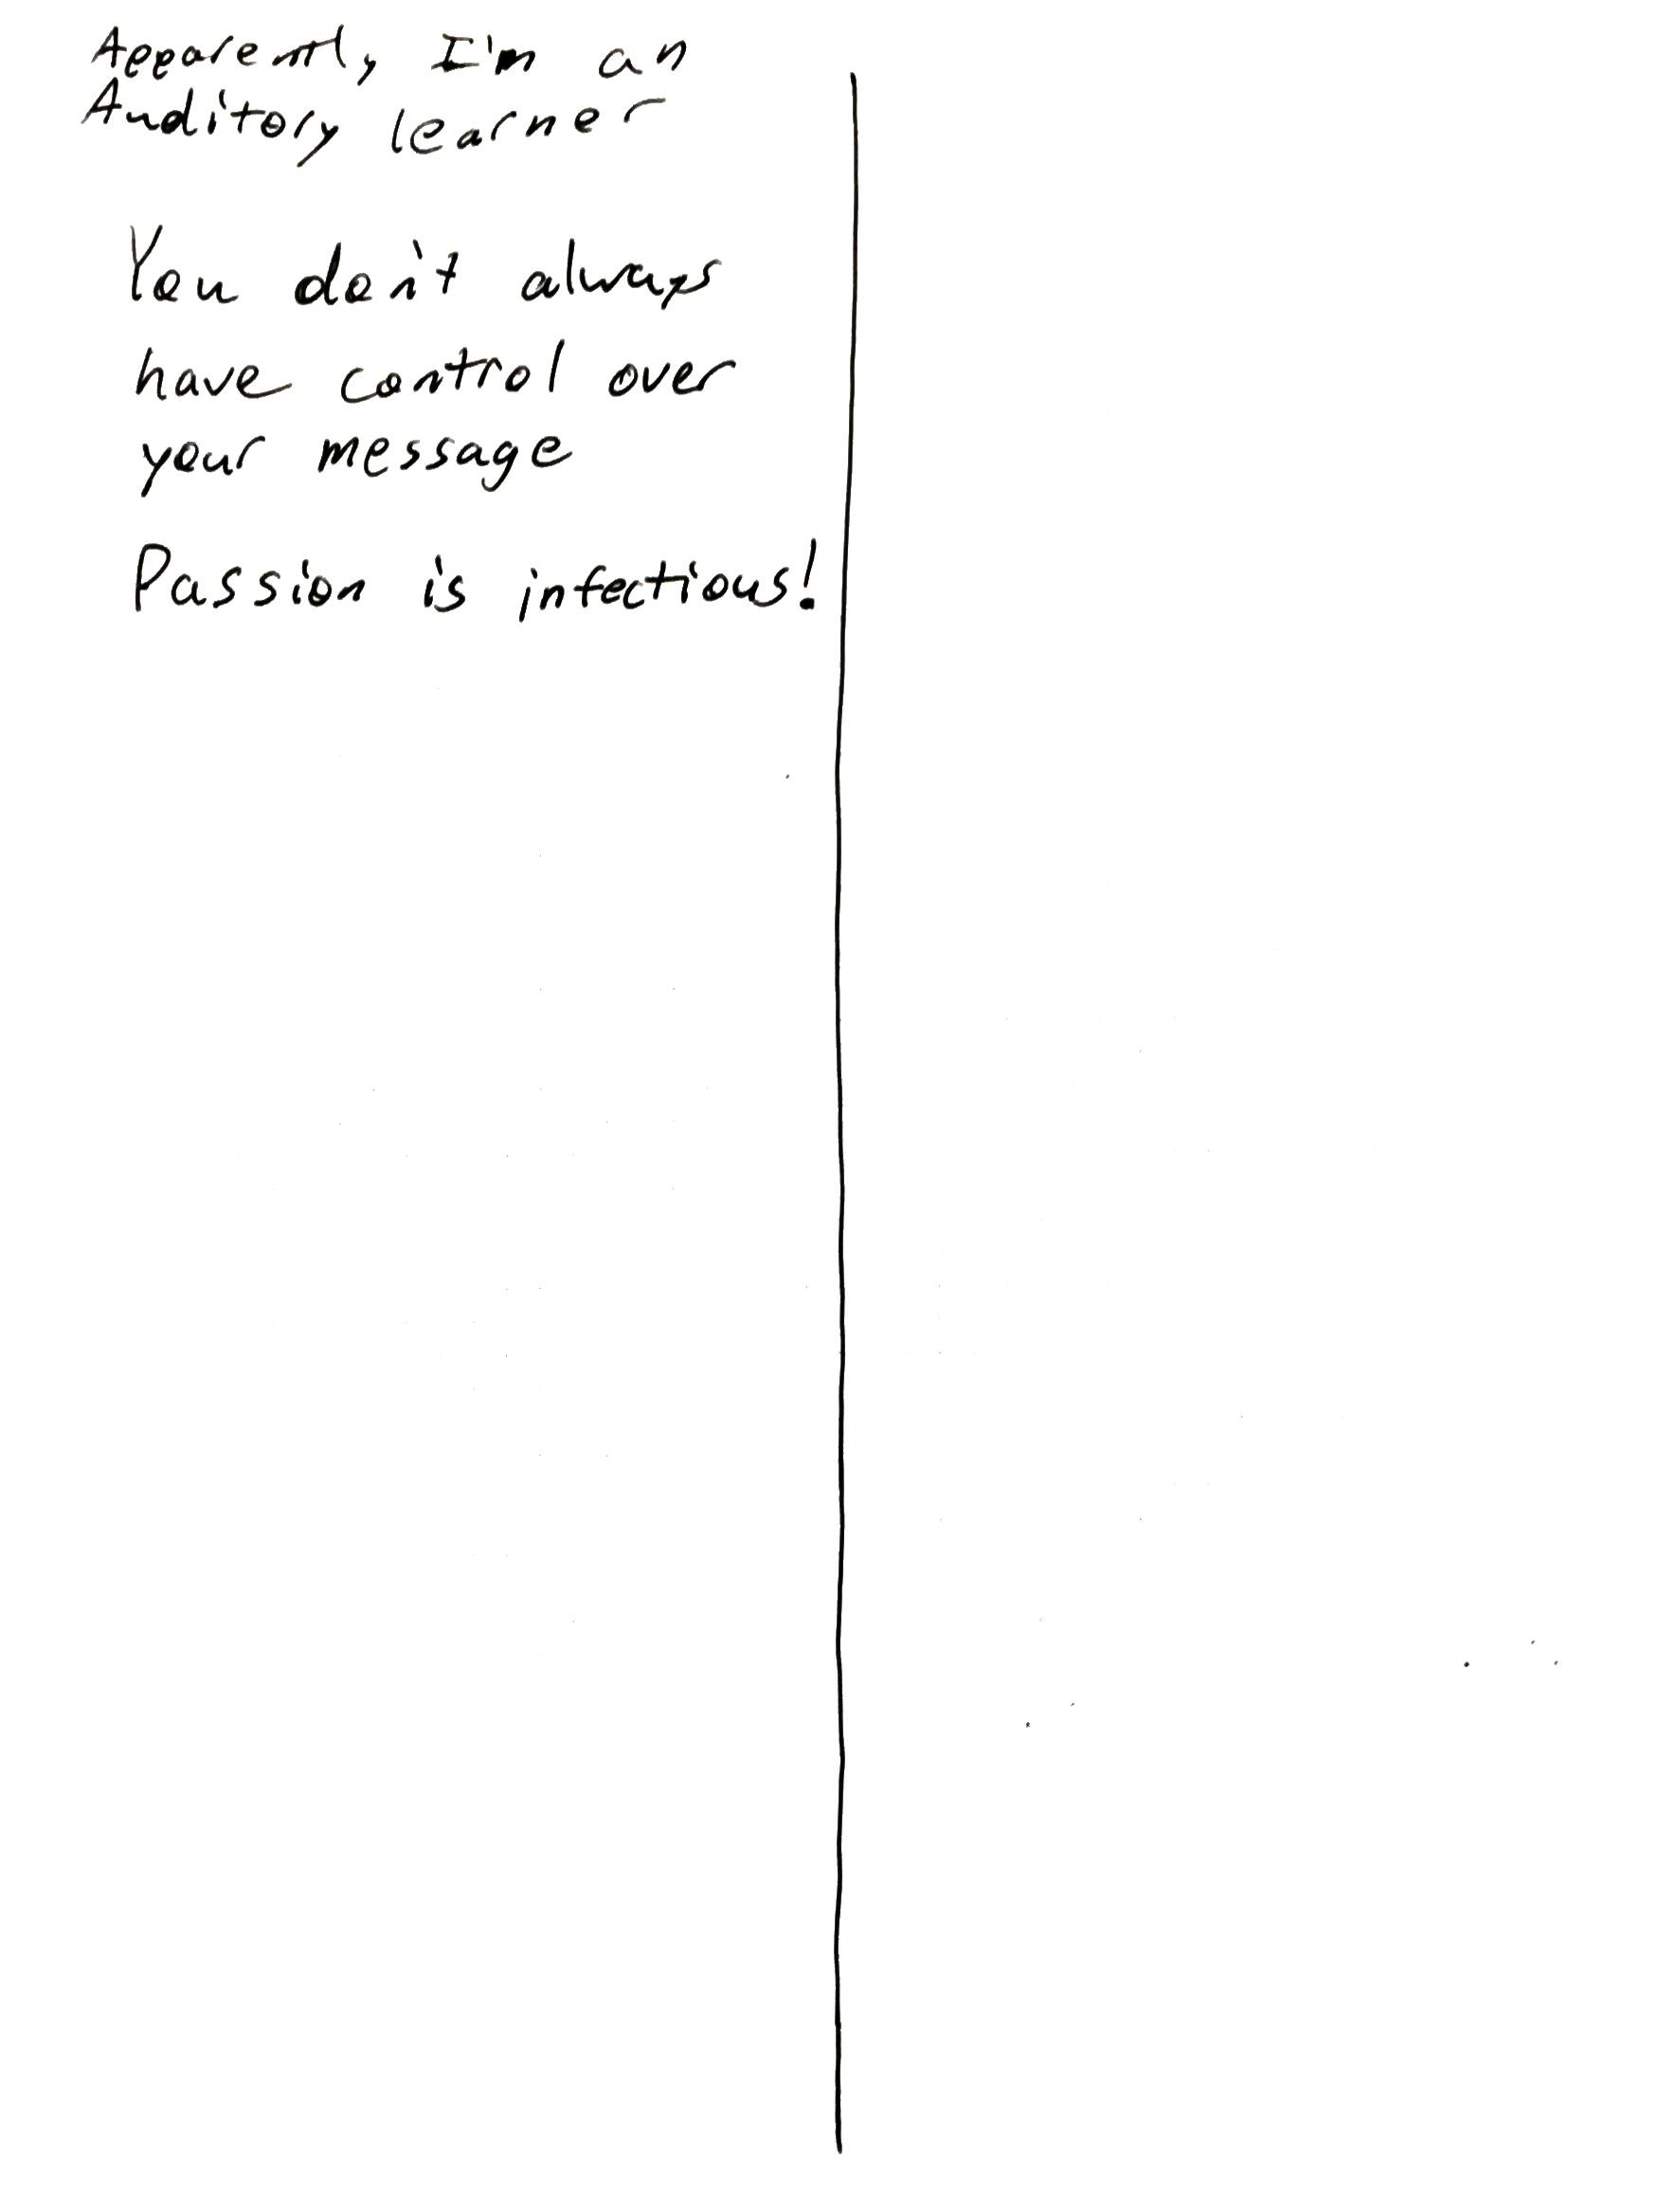 Apparently, I'm an
Auditory learner
You don't always
have control over
your message
Passion is infectious!